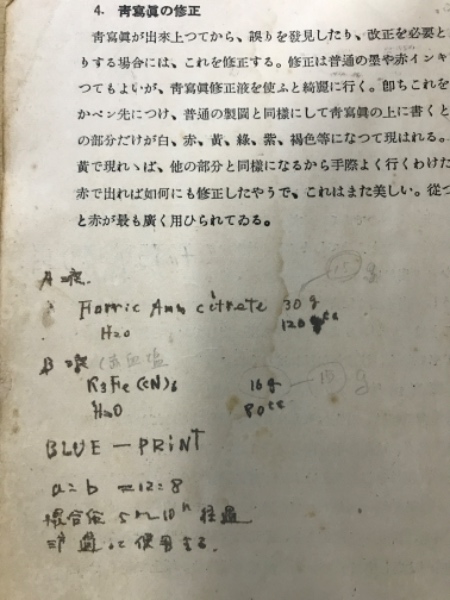 4. 靑寫眞の修正
靑寫眞が出來上つてから、誤りを發見したり、改正を必要と
りする場合には、これを修正する。修正は普通の墨や赤インキ
つてもよいが、靑寫眞修正液を使ふと綺麗に行く。卽ちこれを
かペン先につけ、普通の製圖と同樣にして靑寫眞の上に書くと
の部分だけが白、赤、黃、綠、紫、褐色等になつて現はれる。
黃で現れゝば、他の部分と同樣になるから手際よく行くわけだ
赤で出れば如何にも修正したやうで、これはまた美しい。從つ
と赤が最も廣く用ひられてゐる。
A液
Ferric Amm citrate 30g 15 g
H2O 120cc
B液 (赤血塩
K3Fe(CN)6 16g 15 g
H2O 80cc
BLUE — PRINT
a:b =12:8
混合後 5~10 経過
過して使用する.